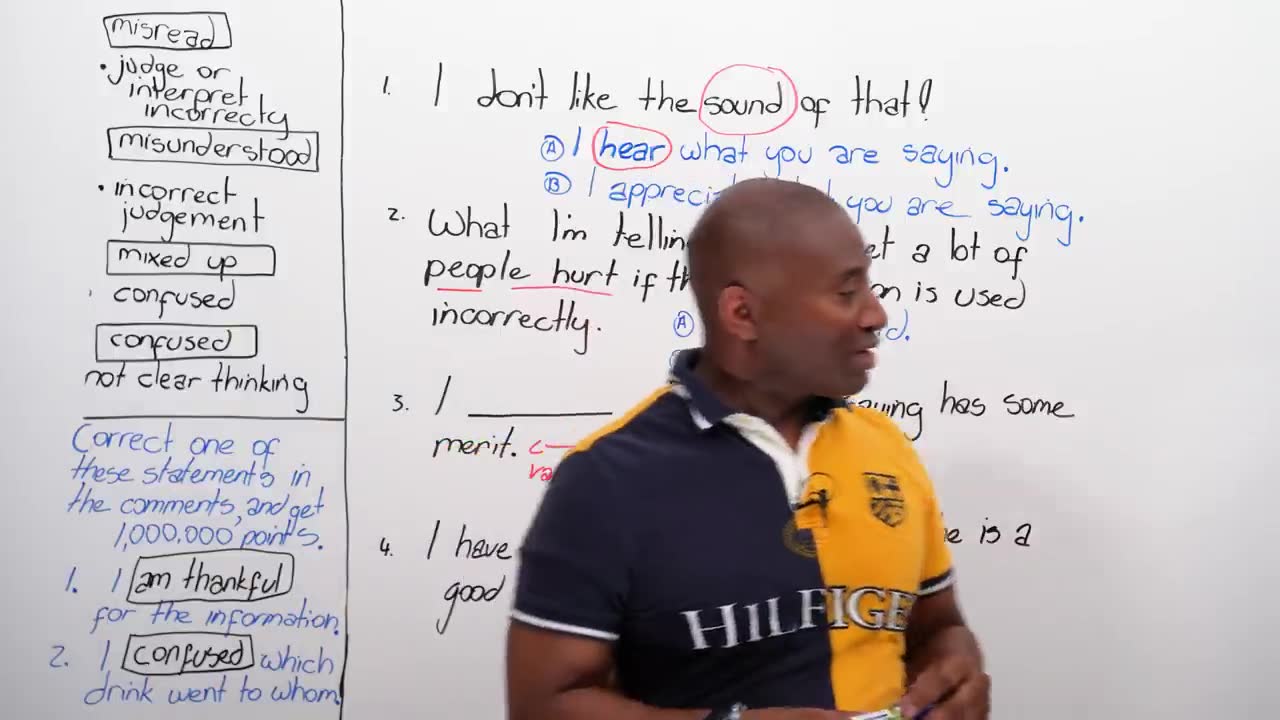 misread
• judge or
interpret
incorrecty
misunderstood
• incorrect
judgement
mixed up
confused
confused
not clear thinking
Correct one of
these statements in
the comments, and get
1,000,000 points.
1. I am thankful
for the information.
2. I confused which
drink went to whom.
1. I don't like the sound of that!
Ⓐ I hear what you are saying.
Ⓑ I you are saying.
2. What I'm a lot of
people hurt if is used
incorrectly.
Ⓐ
3. I ________ has some
merit.
4. I have is a
good
HILFIGE